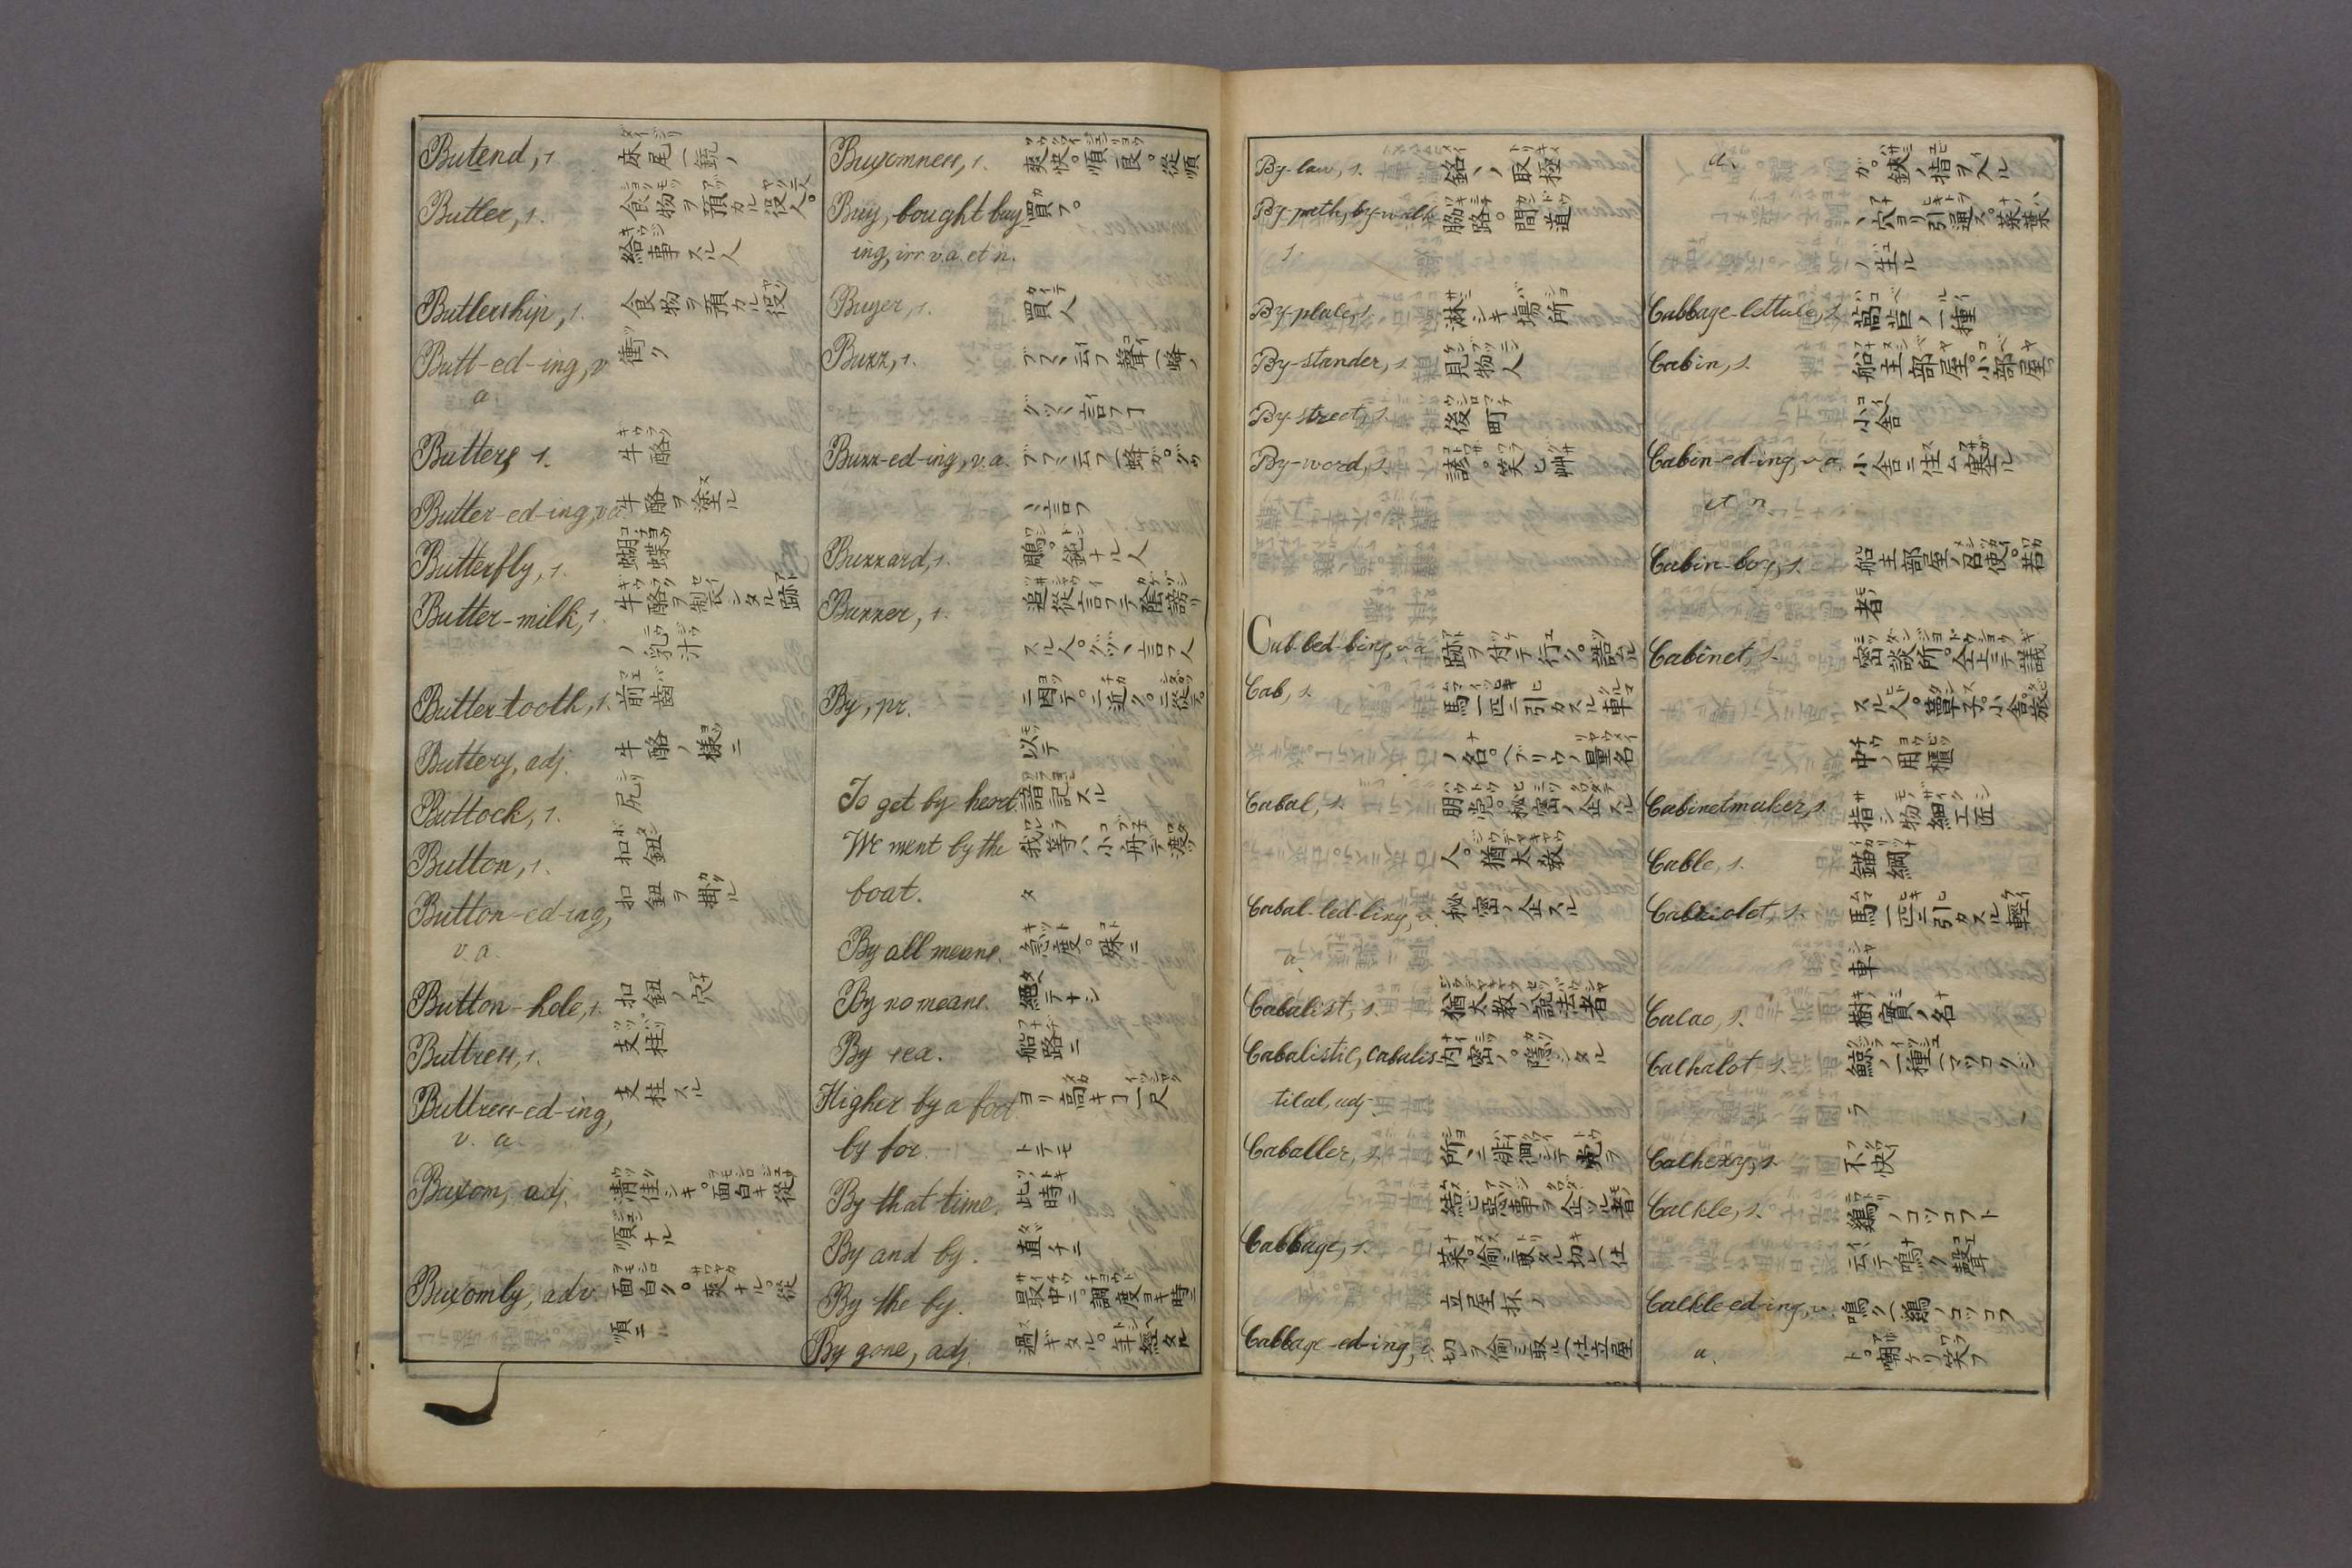 Butend, s. 床尾(銃ノ
Butler, s. 食物ヲ預カル役人。
給事スル人
Butlership, s. 食物ヲ預カル役
Butt-ed-ing, v. 衝ク
a.
Butter, s. 牛酪
Butter-ed-ing, v.a. 牛酪ヲ塗ル
Butterfly, s. 蝴蝶
Butter-milk, s. 牛酪ヲ製シタル跡
ノ乳汁
Butter-tooth, s. 前齒
Buttery, adj. 牛酪ノ樣ニ
Buttock, s. 尻
Button, s. 扣鈕
Button-ed-ing, 扣鈕ヲ掛ル
v. a.
Button-hole, s. 扣鈕ノ穴
Buttress, s. 支柱
Buttress-ed-ing, 支柱スル
v. a.
Buxom, adj. 面白キ。從
順ナル
Buxomly, adv. 面白ク。爽ナル。從
順ニ
Buxomness, s. 爽快。順良。從順
Buy, bought buy 買フ。
ing, irr v.a. et n.
Buyer, s. 買人
Buzz, s. ブブヽ云フ聲(蜂ノ
グツヽ言フヿ
Buzz-ed-ing, v.a. ブブヽ云フ(蜂ガ。グツ
ヽ言フ
Buzzard, s. 鵰。鈍ナル人
Buzzer, s. 追從言フテ陰謗リ
スル人。グツヽ言フ人
By, pr. ニ因テ。ニ近ク。ニ從テ。
以テ
To get by heart. 諳記スル
We went by the 我等ハ小舟デ渡ツ
boat. タ
By all means. 急度。殊ニ
By no means. 絶テナシ
By sea. 船路ニ
Higher by a foot ヨリ高キヿ一尺
by for. トテモ
By that time. 此時ニ
By and by. 直チニ
By the by. 最中ニ。調度ヨキ時ニ
By gone, adj. 過ギタル。年經タル
By-law, s. 銘々ノ取極
By-path, by-walk 脇路。間道
s.
By-place, s. 淋シキ場所
By-stander, s. 見物人
By-street, s. 後町
By-word, s. 諺。笑ヒ艸
Cab-bed-bing, v.a. 跡ヲ付テ行ク。
Cab, s. 馬一匹ニ引カスル車
ノ名。ヘブリウノ量名
Cabal, s. 朋党。秘密ノ企スル
人。猶太教
Cabal-led-ling, v. 秘密ノ企スル
a.
Cabalist, s. 猶太教ノ説法者
Cabalistic, cabalis 内密ノ。隱シタル
tical, adj.
Caballer, s. 所々ニ徘徊シテ党ヲ
結ビ惡事ヲ企ツル者
Cabbage, s. 菜。偷ミ取タル切レ(仕
立屋抔ノ
Cabbage-ed-ing, v. 切ヲ偷ミ取ル(仕立屋
a. ガ。鋏ノ指ヲ入ル
ヽ穴ヨリ引通ス。菜葉
ノ生ル
Cabbage-lettuce, s. 萵苣ノ一種
Cabin, s. 船主部屋。小部屋。
小舎
Cabin-ed-ing, v.a. 小舎ニ住ム塞ル
et n.
Cabin-boy, s. 船主部屋ノ召使。若
者
Cabinet, s. 密談所。仝上ニテ議
スル人。簞子。小舎。旅
中ノ用櫃
Cabinetmaker, s. 指シ物細工匠
Cable, s. 錨綱
Cabriolet, s. 馬一匹ニ引カスル輕
車
Cacao, s. 樹實ノ名
Cachalot, s. 鯨ノ一種(マツコクジ
ラ
Cachexy, s. 不快
Cackle, s. 鷄ノコツコフト
云テ鳴ク聲
Cackle-ed-ing, v. 鳴ク(鷄ノコツコフ
a. ト。嘲ケリ笑フ